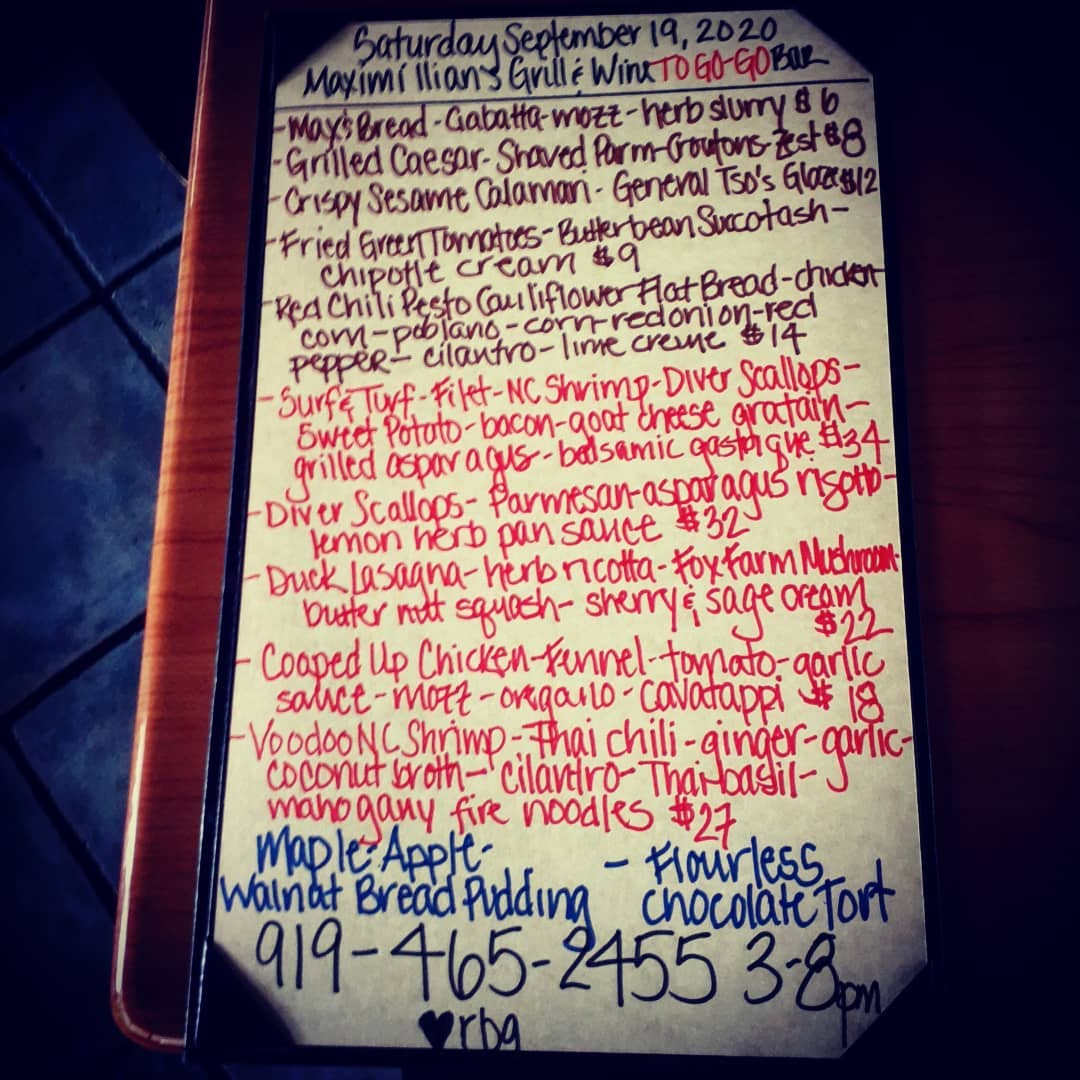 Saturday September 19, 2020
Maximillian's Grill & Wine TO GO-GO BAR
-May's Bread-Ciabatta-mozz-herb slurry $6
-Grilled Caesar-Shaved Parm-Croutons-Zest $8
-Crispy Sesame Calamari-General Tso's Glaze $12
-Fried Green Tomatoes-Butterbean Succotash-
chipotle cream $9
-Red Chili Pesto Cauliflower Flat Bread-chicken
corn-poblano-corn-red onion-red
pepper-cilantro-lime creme $14
-Surf & Turf-Filet-NC Shrimp-Diver Scallops-
Sweet Potato-bacon-goat cheese gratain-
grilled asparagus-balsamic gastrique $34
-Diver Scallops-Parmesan-asparagus risotto-
lemon herb pan sauce $32
-Duck Lasagna-herb ricotta-Fox Farm Mushroom-
butter nutt squash-sherry & sage cream
$22
-Cooped Up Chicken-Fennel-tomato-garlic
sauce-mozz-oregano-cavatappi $18
-Voodoo NC Shrimp-Thai chili-ginger-garlic-
coconut broth-cilantro-Thai-basil-
mahogany fire noodles $27
Maple-Apple-
Walnut Bread Pudding
-Flourless
chocolate Tort
919-465-2455 3-8pm
♥rbg